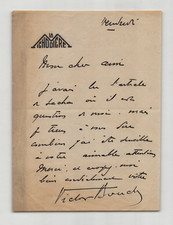 LA
MICHODIÈRE
Vendredi
Mon cher ami
J'ai lu l'article
de Sacha où il est
question de moi, mais
je tiens à vous dire
combien j'ai été sensible
à votre aimable attention
Merci, et croyez-moi
bien cordialement vôtre
Victor Boucher